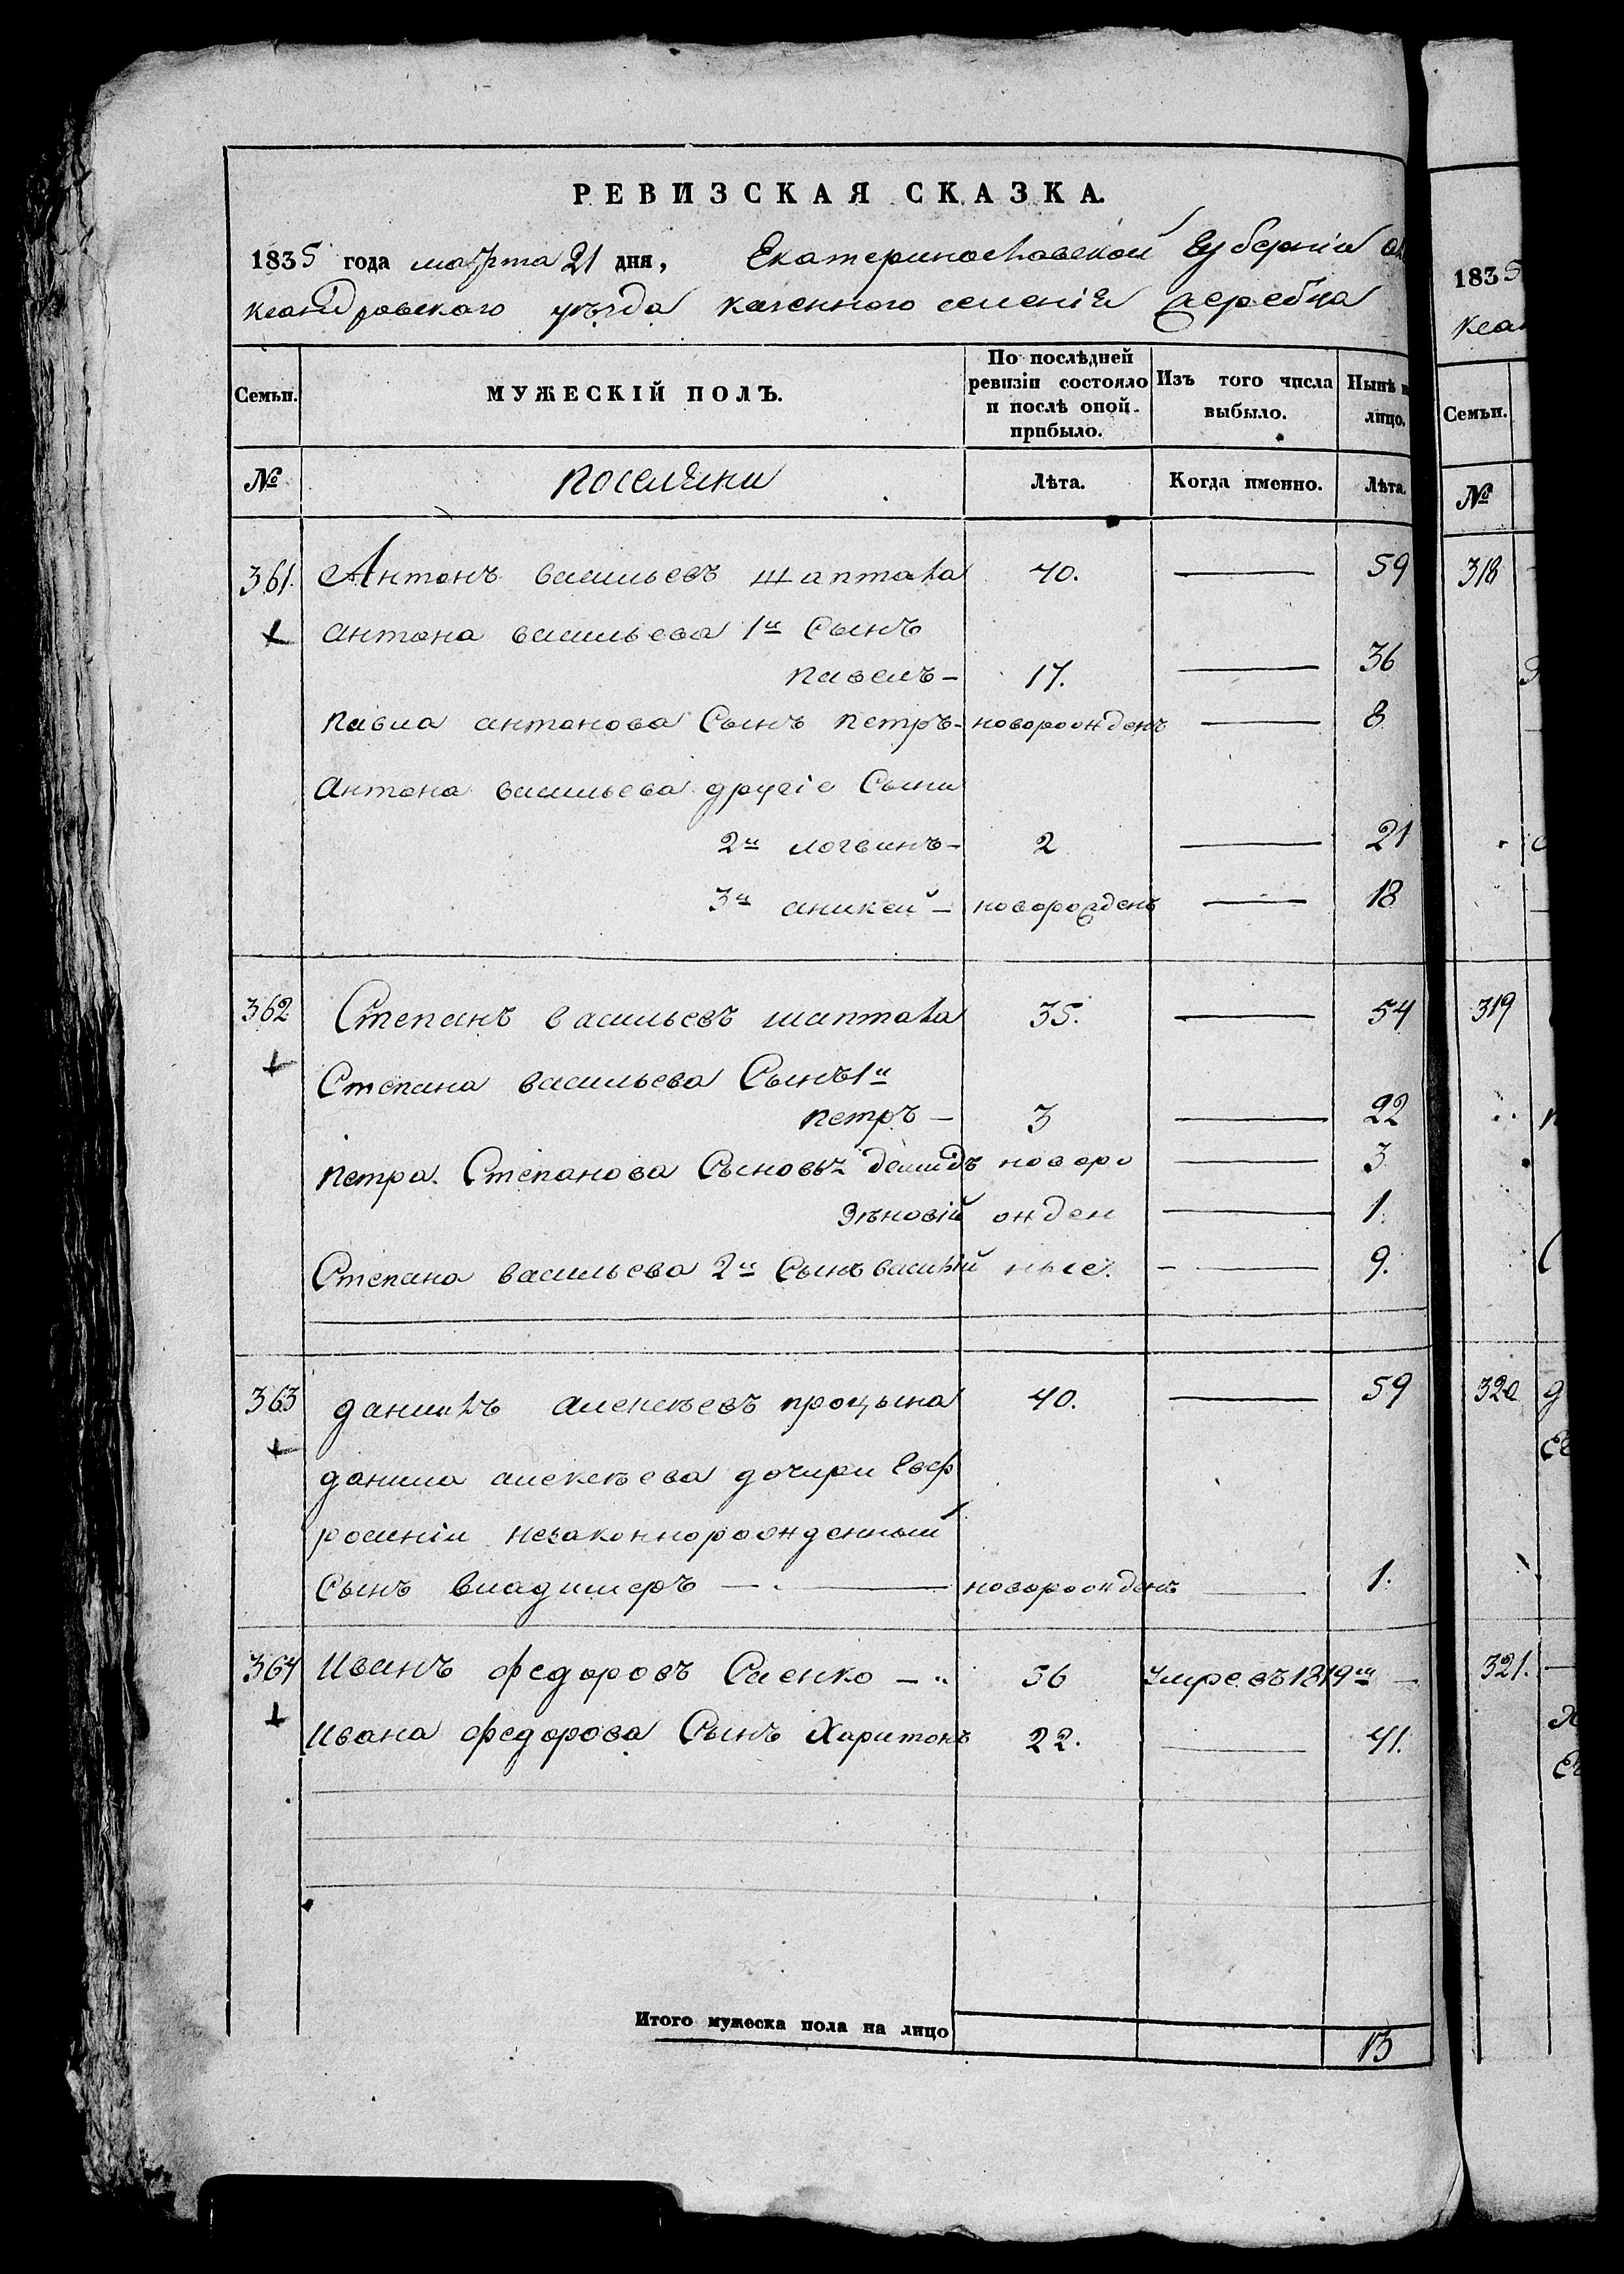 РЕВИЗСКАЯ СКАЗКА.
1835 года марта 21 дня, Екатеринославской Губернiи Але
ксандровского уѣзда казенного селенiя Жеребца
Семьи. МУЖЕСКIЙ ПОЛЪ. По послѣдней ревизiи состояло и послѣ оной прибыло. Изъ того числа выбыло. Нынѣ на лицо.
№ поселяни Лѣта. Когда именно. Лѣта.
361. Антонъ васильевъ шаптала 40. — 59
антона васильева 1й Сынъ
павелъ — 17. — 36
павла антонова Сынъ петръ — новорожденъ — 8
Антона васильева другiе Сыни
2й логвинъ — 2 — 21
3й аникей — новорожденъ — 18
362. Степанъ васильевъ шаптала 35. — 54
Степана васильева Сынъ 1й
петръ — 3 — 22
петра Степанова Сыновья демидъ новоро — 3
Зѣновiй жден — 1.
Степана васильева 2й Сынъ василiй ные. — 9.
363 данилъ алексѣевъ процына 40. — 59
данила алексѣева дочири Евф
росинiи незаконнорожденный
Сынъ владимеръ — новорожденъ — 1.
364 Иванъ федоровъ Саенко — 56 умре въ 1819м —
Ивана федорова Сынъ Харитонъ 22. — 41.
Итого мужеска пола на лицо 13
1835
ксан
Семьи.
№
318
319
320 д
321.